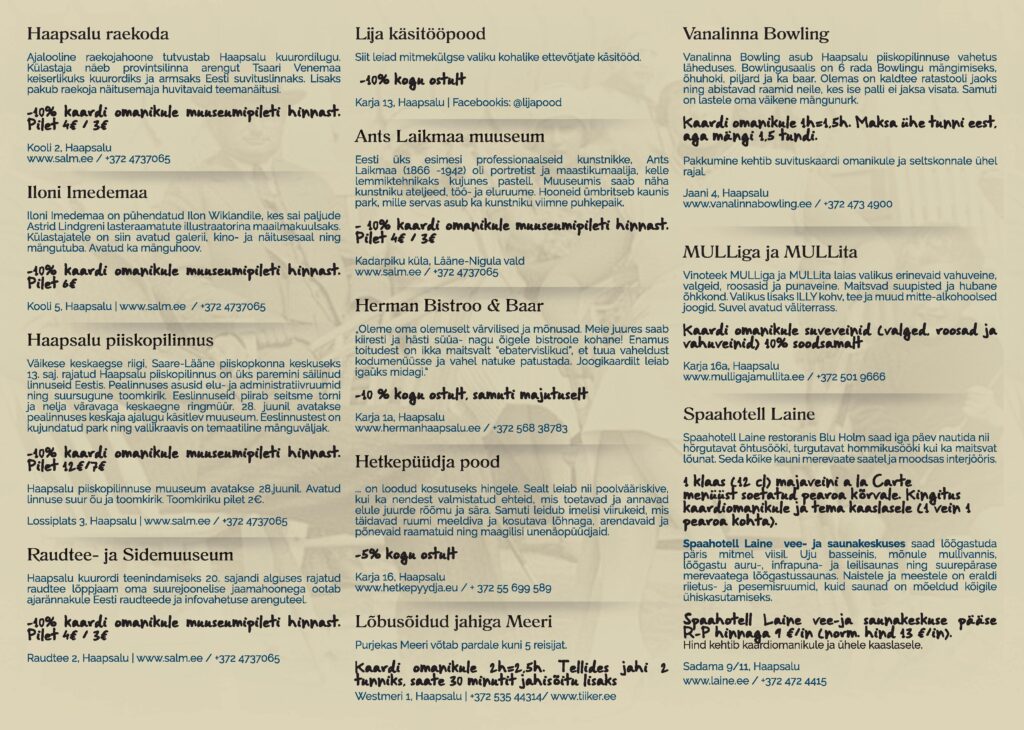 Haapsalu raekoda
Ajalooline raekojahoone tutvustab Haapsalu kuurordilugu.
Külastaja näeb provintsilinna arengut Tsaari Venemaa
keiserlikuks kuurordiks ja armsaks Eesti suvituslinnaks. Lisaks
pakub raekoja näitusemaja huvitavaid teemanäitusi.
-10% kaardi omanikule muuseumipileti hinnast.
Pilet 4€ / 3€
Kooli 2, Haapsalu
www.salm.ee / +372 4737065
Iloni Imedemaa
Iloni Imedemaa on pühendatud Ilon Wiklandile, kes sai paljude
Astrid Lindgreni lasteraamatute illustraatorina maailmakuulsaks.
Külastajatele on siin avatud galerii, kino- ja näitusesaal ning
mängutuba. Avatud ka mänguhoov.
-10% kaardi omanikule muuseumipileti hinnast.
Pilet 6€
Kooli 5, Haapsalu | www.salm.ee / +372 4737065
Haapsalu piiskopilinnus
Väikese keskaegse riigi, Saare-Lääne piiskopkonna keskuseks
13. saj. rajatud Haapsalu piiskopilinnus on üks paremini säilinud
linnuseid Eestis. Pealinnuses asusid elu- ja administratiivruumid
ning suursugune toomkirik. Eeslinnuseid piirab seitsme torni
ja nelja väravaga keskaegne ringmüür. 28. juunil avatakse
pealinnuses keskaja ajalugu käsitlev muuseum. Eeslinnustest on
kujundatud park ning vallikraavis on temaatiline mänguväljak.
-10% kaardi omanikule muuseumipileti hinnast.
Pilet 12€/7€
Haapsalu piiskopilinnuse muuseum avatakse 28.juunil. Avatud
linnuse suur õu ja toomkirik. Toomkiriku pilet 2€.
Lossiplats 3, Haapsalu | www.salm.ee / +372 4737065
Raudtee- ja Sidemuuseum
Haapsalu kuurordi teenindamiseks 20. sajandi alguses rajatud
raudtee lõppjaam oma suurejoonelise jaamahoonega ootab
ajarännakule Eesti raudteede ja infovahetuse arenguteel.
-10% kaardi omanikule muuseumipileti hinnast.
Pilet 4€ / 3€
Raudtee 2, Haapsalu | www.salm.ee / +372 4737065
Lija käsitööpood
Siit leiad mitmekülgse valiku kohalike ettevõtjate käsitööd.
-10% kogu ostult
Karja 13, Haapsalu | Facebookis: @lijapood
Ants Laikmaa muuseum
Eesti üks esimesi professionaalseid kunstnikke, Ants
Laikmaa (1866 -1942) oli portretist ja maastikumaalija, kelle
lemmiktehnikaks kujunes pastell. Muuseumis saab näha
kunstniku ateljeed, töö- ja eluruume. Hooneid ümbritseb kaunis
park, mille servas asub ka kunstniku viimne puhkepaik.
- 10% kaardi omanikule muuseumipileti hinnast.
Pilet 4€ / 3€
Kadarpiku küla, Lääne-Nigula vald
www.salm.ee / +372 4737065
Herman Bistroo & Baar
„Oleme oma olemuselt värvilised ja mõnusad. Meie juures saab
kiiresti ja hästi süüa- nagu õigele bistroole kohane! Enamus
toitudest on ikka maitsvalt “ebatervislikud”, et tuua vaheldust
kodumenüüsse ja vahel natuke patustada. Joogikaardilt leiab
igaüks midagi.“
-10 % kogu ostult, samuti majutuselt
Karja 1a, Haapsalu
www.hermanhaapsalu.ee / +372 568 38783
Hetkepüüdja pood
... on loodud kosutuseks hingele. Sealt leiab nii poolvääriskive,
kui ka nendest valmistatud ehteid, mis toetavad ja annavad
elule juurde rõõmu ja sära. Samuti leidub imelisi viirukeid, mis
täidavad ruumi meeldiva ja kosutava lõhnaga, arendavaid ja
põnevaid raamatuid ning maagilisi unenäopüüdjaid.
-5% kogu ostult
Karja 16, Haapsalu
www.hetkepyydja.eu / + 372 55 699 589
Lõbusõidud jahiga Meeri
Purjekas Meeri võtab pardale kuni 5 reisijat.
Kaardi omanikule 2h=2,5h. Tellides jahi 2
tunniks, saate 30 minutit jahisõitu lisaks
Westmeri 1, Haapsalu | +372 535 44314/ www.tiiker.ee
Vanalinna Bowling
Vanalinna Bowling asub Haapsalu piiskopilinnuse vahetus
läheduses. Bowlingusaalis on 6 rada Bowlingu mängimiseks,
õhuhoki, piljard ja ka baar. Olemas on kaldtee ratastooli jaoks
ning abistavad raamid neile, kes ise palli ei jaksa visata. Samuti
on lastele oma väikene mängunurk.
Kaardi omanikule 1h=1,5h. Maksa ühe tunni eest,
aga mängi 1,5 tundi.
Pakkumine kehtib suvituskaardi omanikule ja seltskonnale ühel
rajal.
Jaani 4, Haapsalu
www.vanalinnabowling.ee / +372 473 4900
MULLiga ja MULLita
Vinoteek MULLiga ja MULLita laias valikus erinevaid vahuveine,
valgeid, roosasid ja punaveine. Maitsvad suupisted ja hubane
õhkkond. Valikus lisaks ILLY kohv, tee ja muud mitte-alkohoolsed
joogid. Suvel avatud väliterrass.
Kaardi omanikule suveveinid (valged, roosad ja
vahuveinid) 10% soodsamalt
Karja 16a, Haapsalu
www.mulligajamullita.ee / +372 501 9666
Spaahotell Laine
Spaahotell Laine restoranis Blu Holm saad iga päev nautida nii
hõrgutavat õhtusööki, turgutavat hommikusööki kui ka maitsvat
lõunat. Seda kõike kauni merevaate saatel ja moodsas interjööris.
1 klaas (12 cl) majaveini a la Carte
menüüst soetatud pearoa kõrvale. Kingitus
kaardiomanikule ja tema kaaslasele (1 vein 1
pearoa kohta).
Spaahotell Laine vee- ja saunakeskuses saad lõõgastuda
päris mitmel viisil. Uju basseinis, mõnule mullivannis,
lõõgastu auru-, infrapuna- ja leilisaunas ning suurepärase
merevaatega lõõgastussaunas. Naistele ja meestele on eraldi
riietus- ja pesemisruumid, kuid saunad on mõeldud kõigile
ühiskasutamiseks.
Spaahotell Laine vee-ja saunakeskuse pääse
R-P hinnaga 9 €/in (norm. hind 13 €/in).
Hind kehtib kaardiomanikule ja ühele kaaslasele.
Sadama 9/11, Haapsalu
www.laine.ee / +372 472 4415